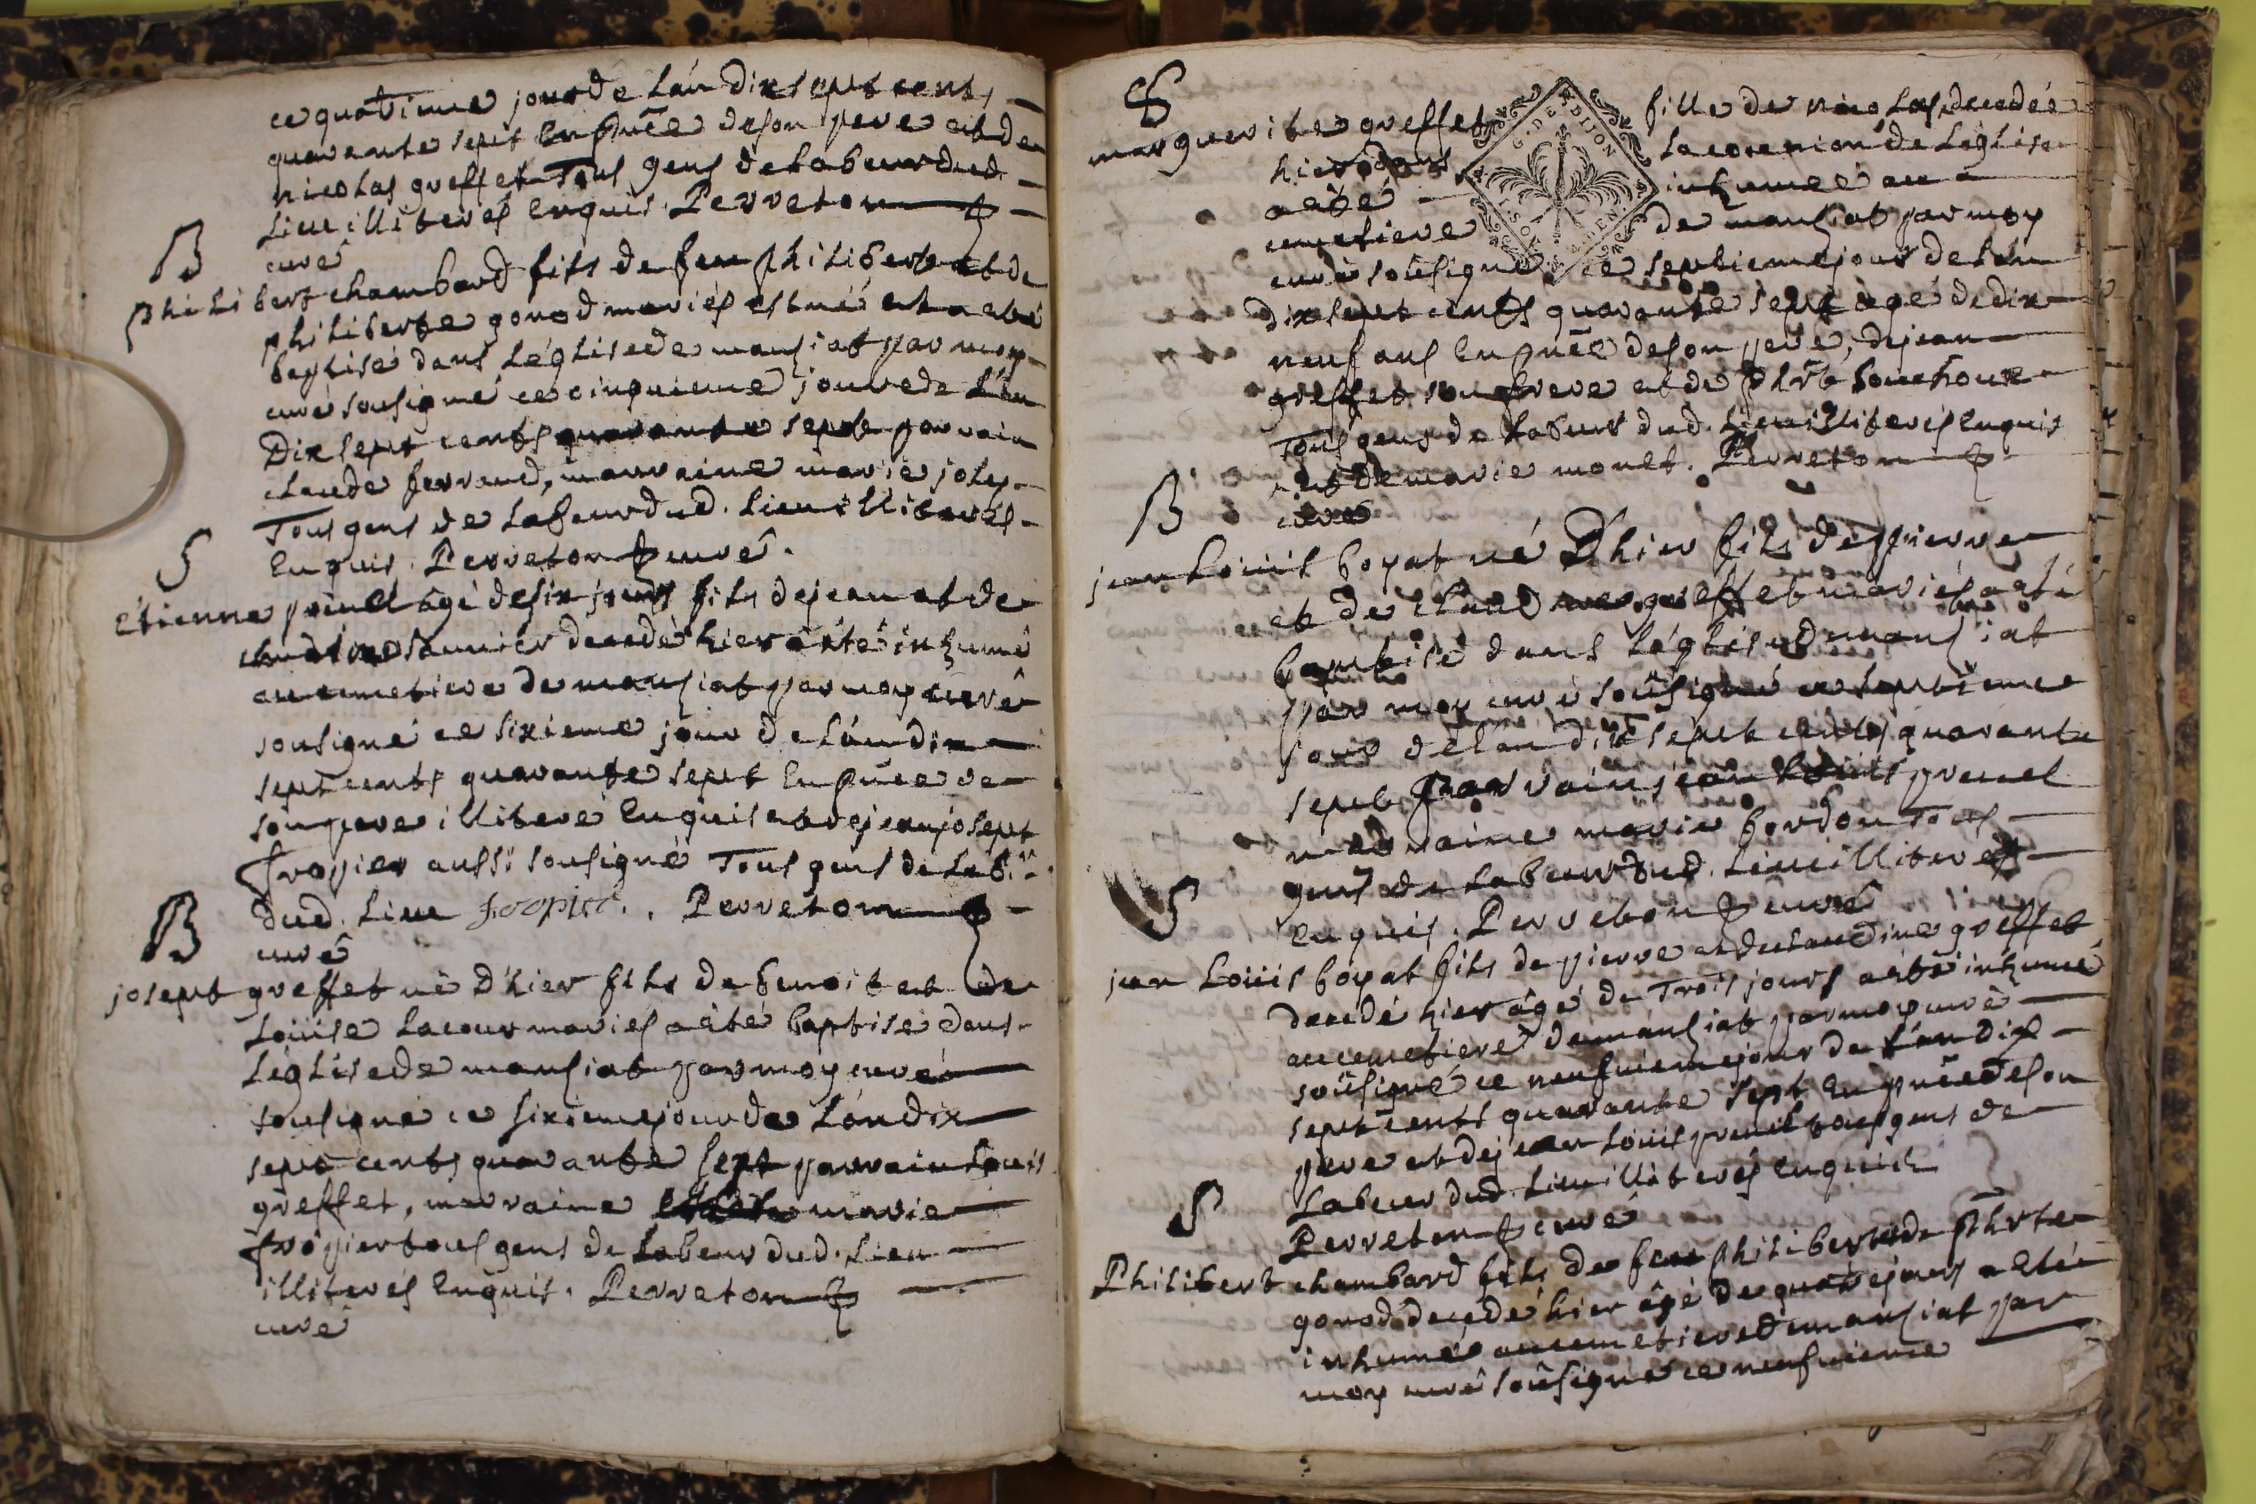 ce quatrieme jour de l'an dix sept cents
quarante sept en pñce de son pere et de
nicolas greffet Tous gens de labeur dud.
lieu illiterés enquis. Perreton
curé
B
philibert chambard fils de feu philibert et de
philiberte gonod mariés est né et a eté
baptisé dans l'église de mansiat par moy
curé sousigné ce cinquieme jour de l'an
Dix sept cents quarante sept parrain
claude ferrand, marraine marie joly
Tous gens de labeur dud. lieu illiterés
enquis. Perreton curé.
S
étienne agé de six jours fils de jean et de
decedé hier a eté inhumé
au cemetiere de mansiat par moy curé
sousigné ce sixieme jour de l'an dix
sept cents quarante sept en pñce de
son pere illiteré enquis et de jean josept
fropier aussi sousigné Tous gens de lab.
dud. lieu fropier. Perreton
curé
B
josept greffet né D'hier fils de benoit et de
Loüise Lacour mariés a eté baptisé dans
l'église de mansiat par moy curé
sousigné ce sixieme jour de l'an dix
sept cents quarante sept parrain Louis
greffet, marraine marie
fropier tous gens de labeur dud. lieu
illiterés enquis. Perreton
curé
S
marguerite greffet fille de nicolas decedée
hier dans la comunion de l'église
a eté inhumée au
cemetiere de mansiat par moy
curé soûsigné ce septieme jour de l'an
dix sept cents quarante sept agé de dix
neuf ans en pñce de son pere, de jean
greffet son frere et de
Tous gens de labeur dud. lieu illiterés enquis
et de marie monet. Perreton
curé
G. DE DIJON
B
jean Loüis boyat né D'hier fils de pierre
et de greffet mariés a eté
baptisé dans l'église de mansiat
par moy curé soûsigné ce septieme
jour de l'an dix sept cents quarante
sept parrain jean Loüis
marraine marie bordon Tous
gens de labeur dud. lieu illiterés
enquis. Perreton curé
S
jean Loüis boyat fils de pierre et de claudine greffet
decedé hier âgé de Trois jours a eté inhumé
au cemetiere de mansiat par moy curé
soûsigné ce neufvieme jour de l'an dix
sept cents quarante sept en pñce de son
pere et de jean Loüis tous gens de
labeur dud. lieu illiterés enquis
Perreton curé
S
Philibert chambard fils de feu philibert et de phrte
gonod decedé hier âgé de quatre jours a eté
inhumé au cemetiere de mansiat par
moy curé soûsigné ce neufvieme